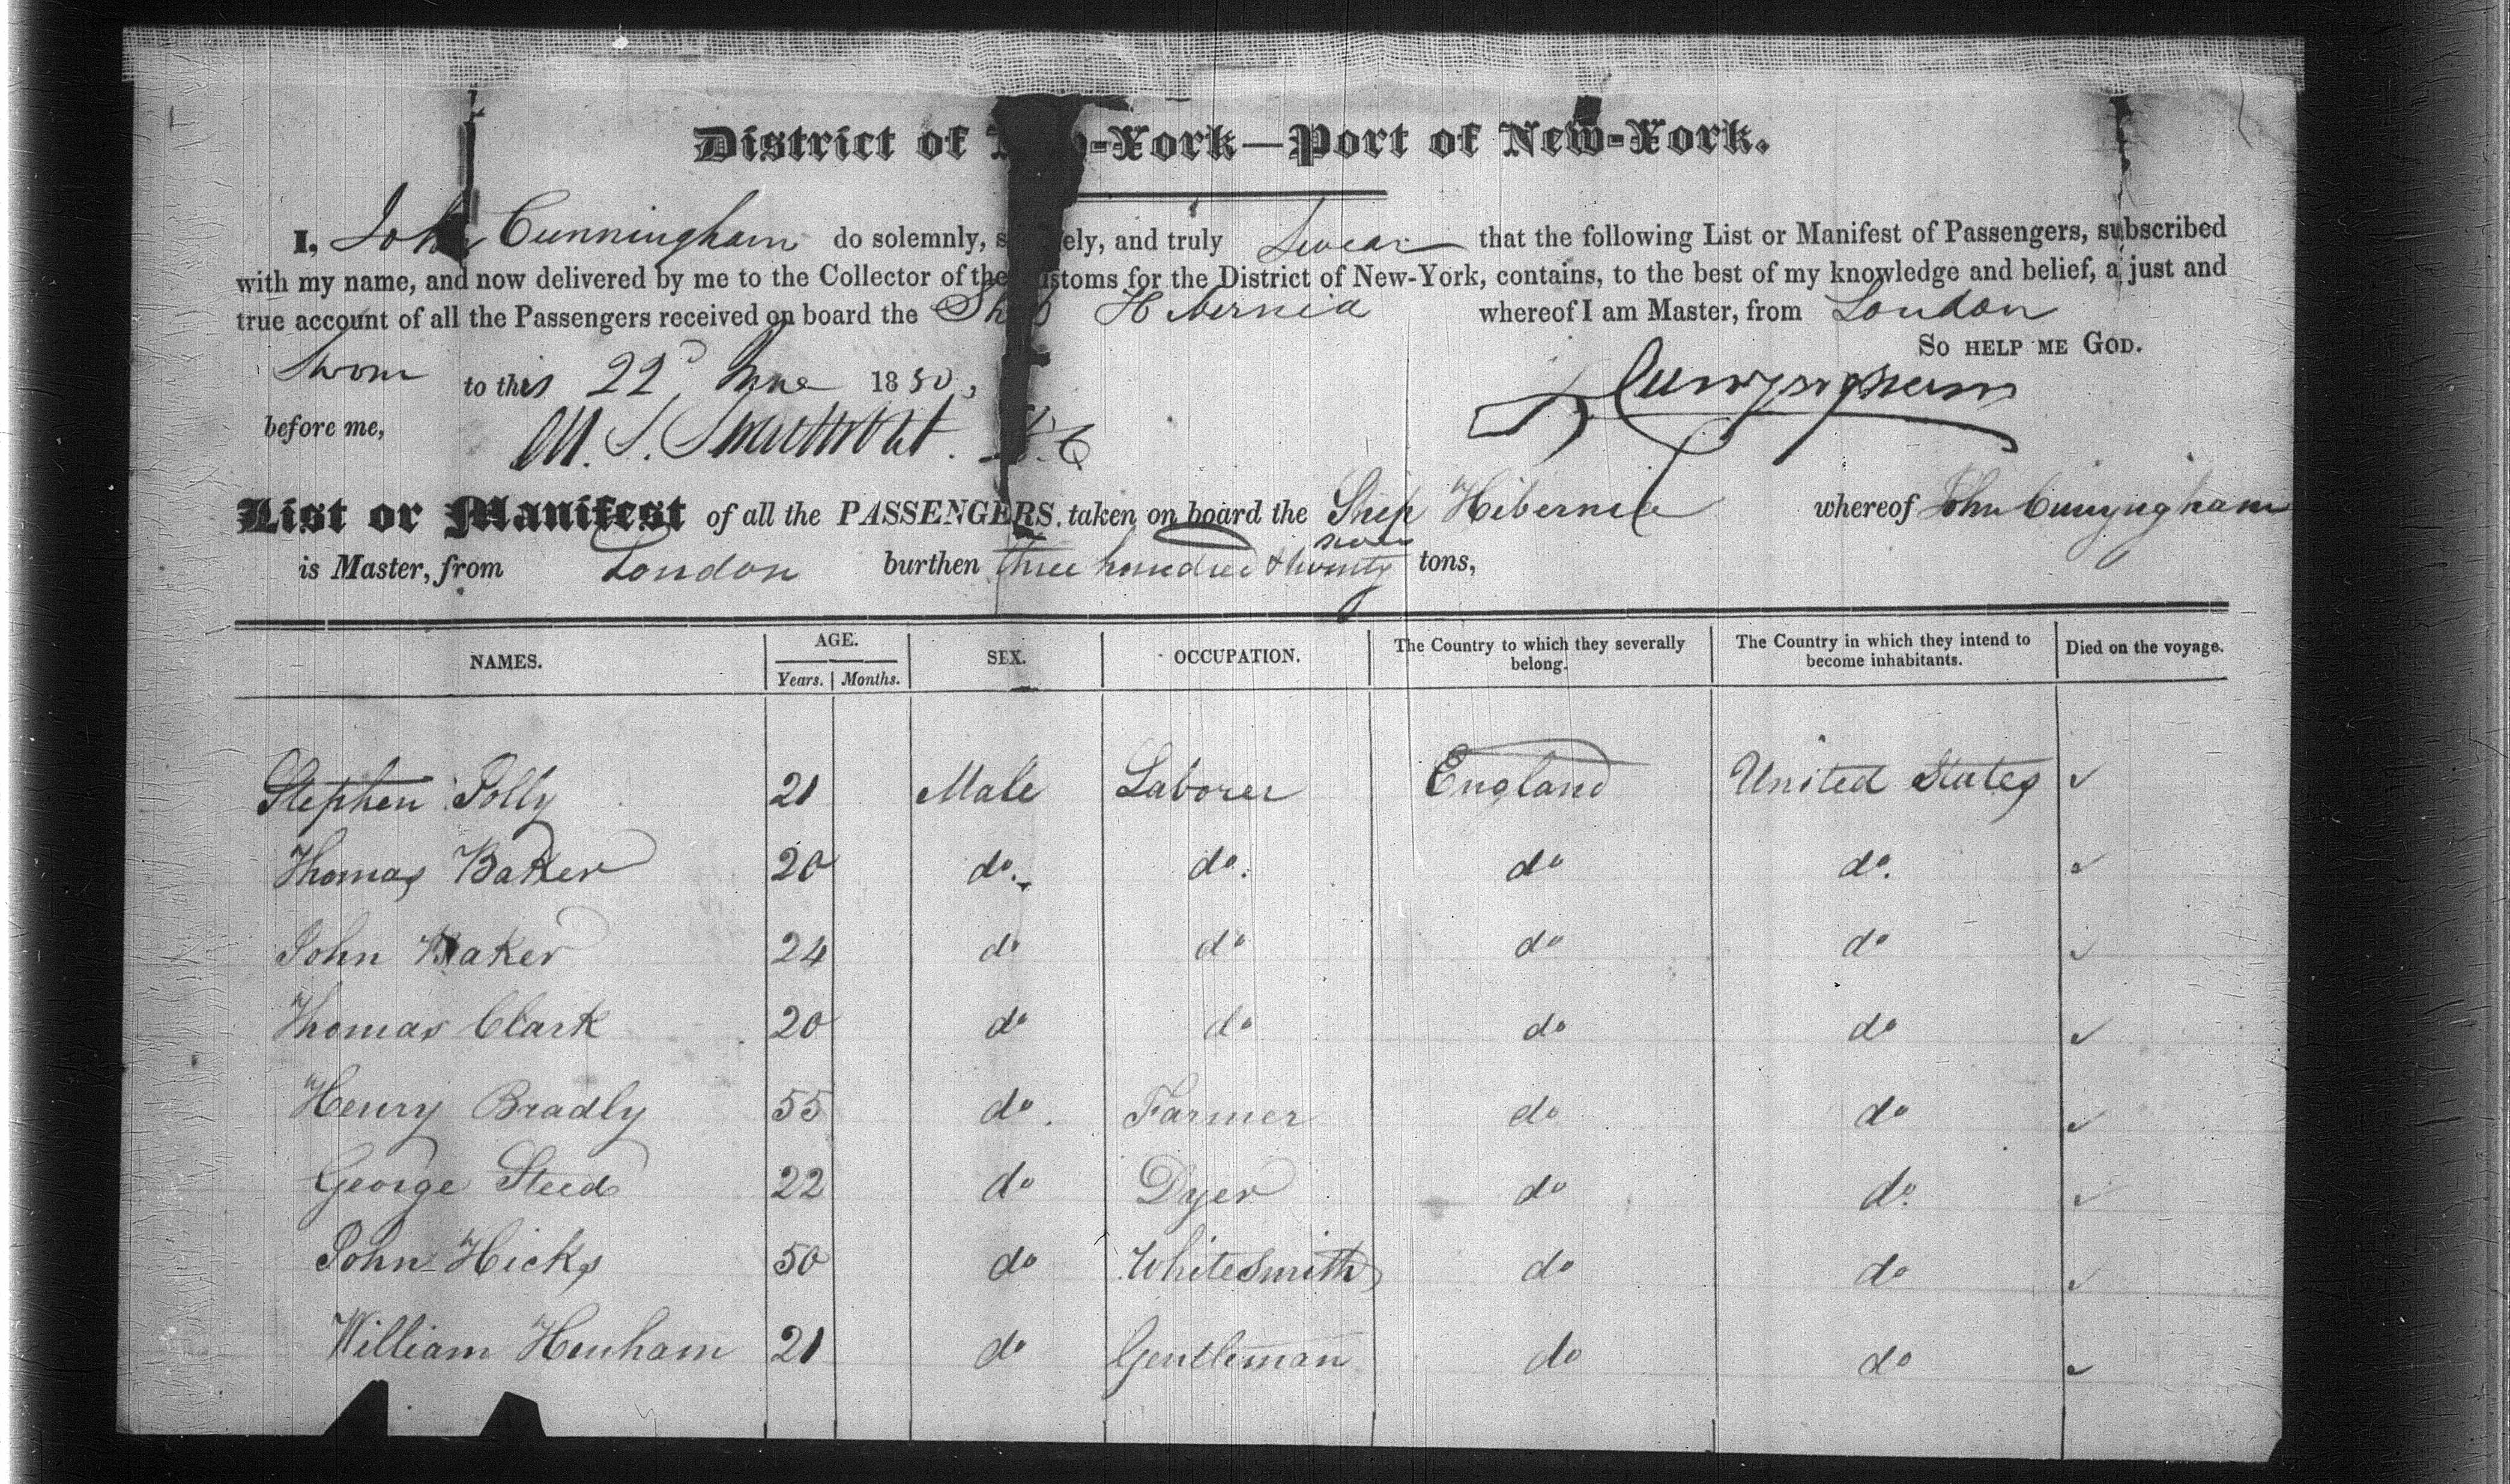 District of New-York—Port of New-York.
I, John Cunningham do solemnly, s ely, and truly Swear that the following List or Manifest of Passengers, subscribed
with my name, and now delivered by me to the Collector of the ustoms for the District of New-York, contains, to the best of my knowledge and belief, a just and
true account of all the Passengers received on board the Ship Hibernia whereof I am Master, from London
So help me God.
Sworn to this 22d June 1830,
before me,
List or Manifest of all the PASSENGERS, taken on board the Ship Hibernia whereof John Cunyngham
is Master, from London burthen three hundred & twenty tons,
NAMES. AGE. Years. Months. SEX. OCCUPATION. The Country to which they severally belong. The Country in which they intend to become inhabitants. Died on the voyage.
Stephen Polly 21 Male Laborer England United States
Thomas Baker 20 do. do. do do.
John Baker 24 do do do do
Thomas Clark 20 do do do do
Henry Bradly 55 do Farmer do do
George Steed 22 do Dyer do do.
John Hicks 50 do Whitesmith do do
William Henham 21 do Gentleman do do